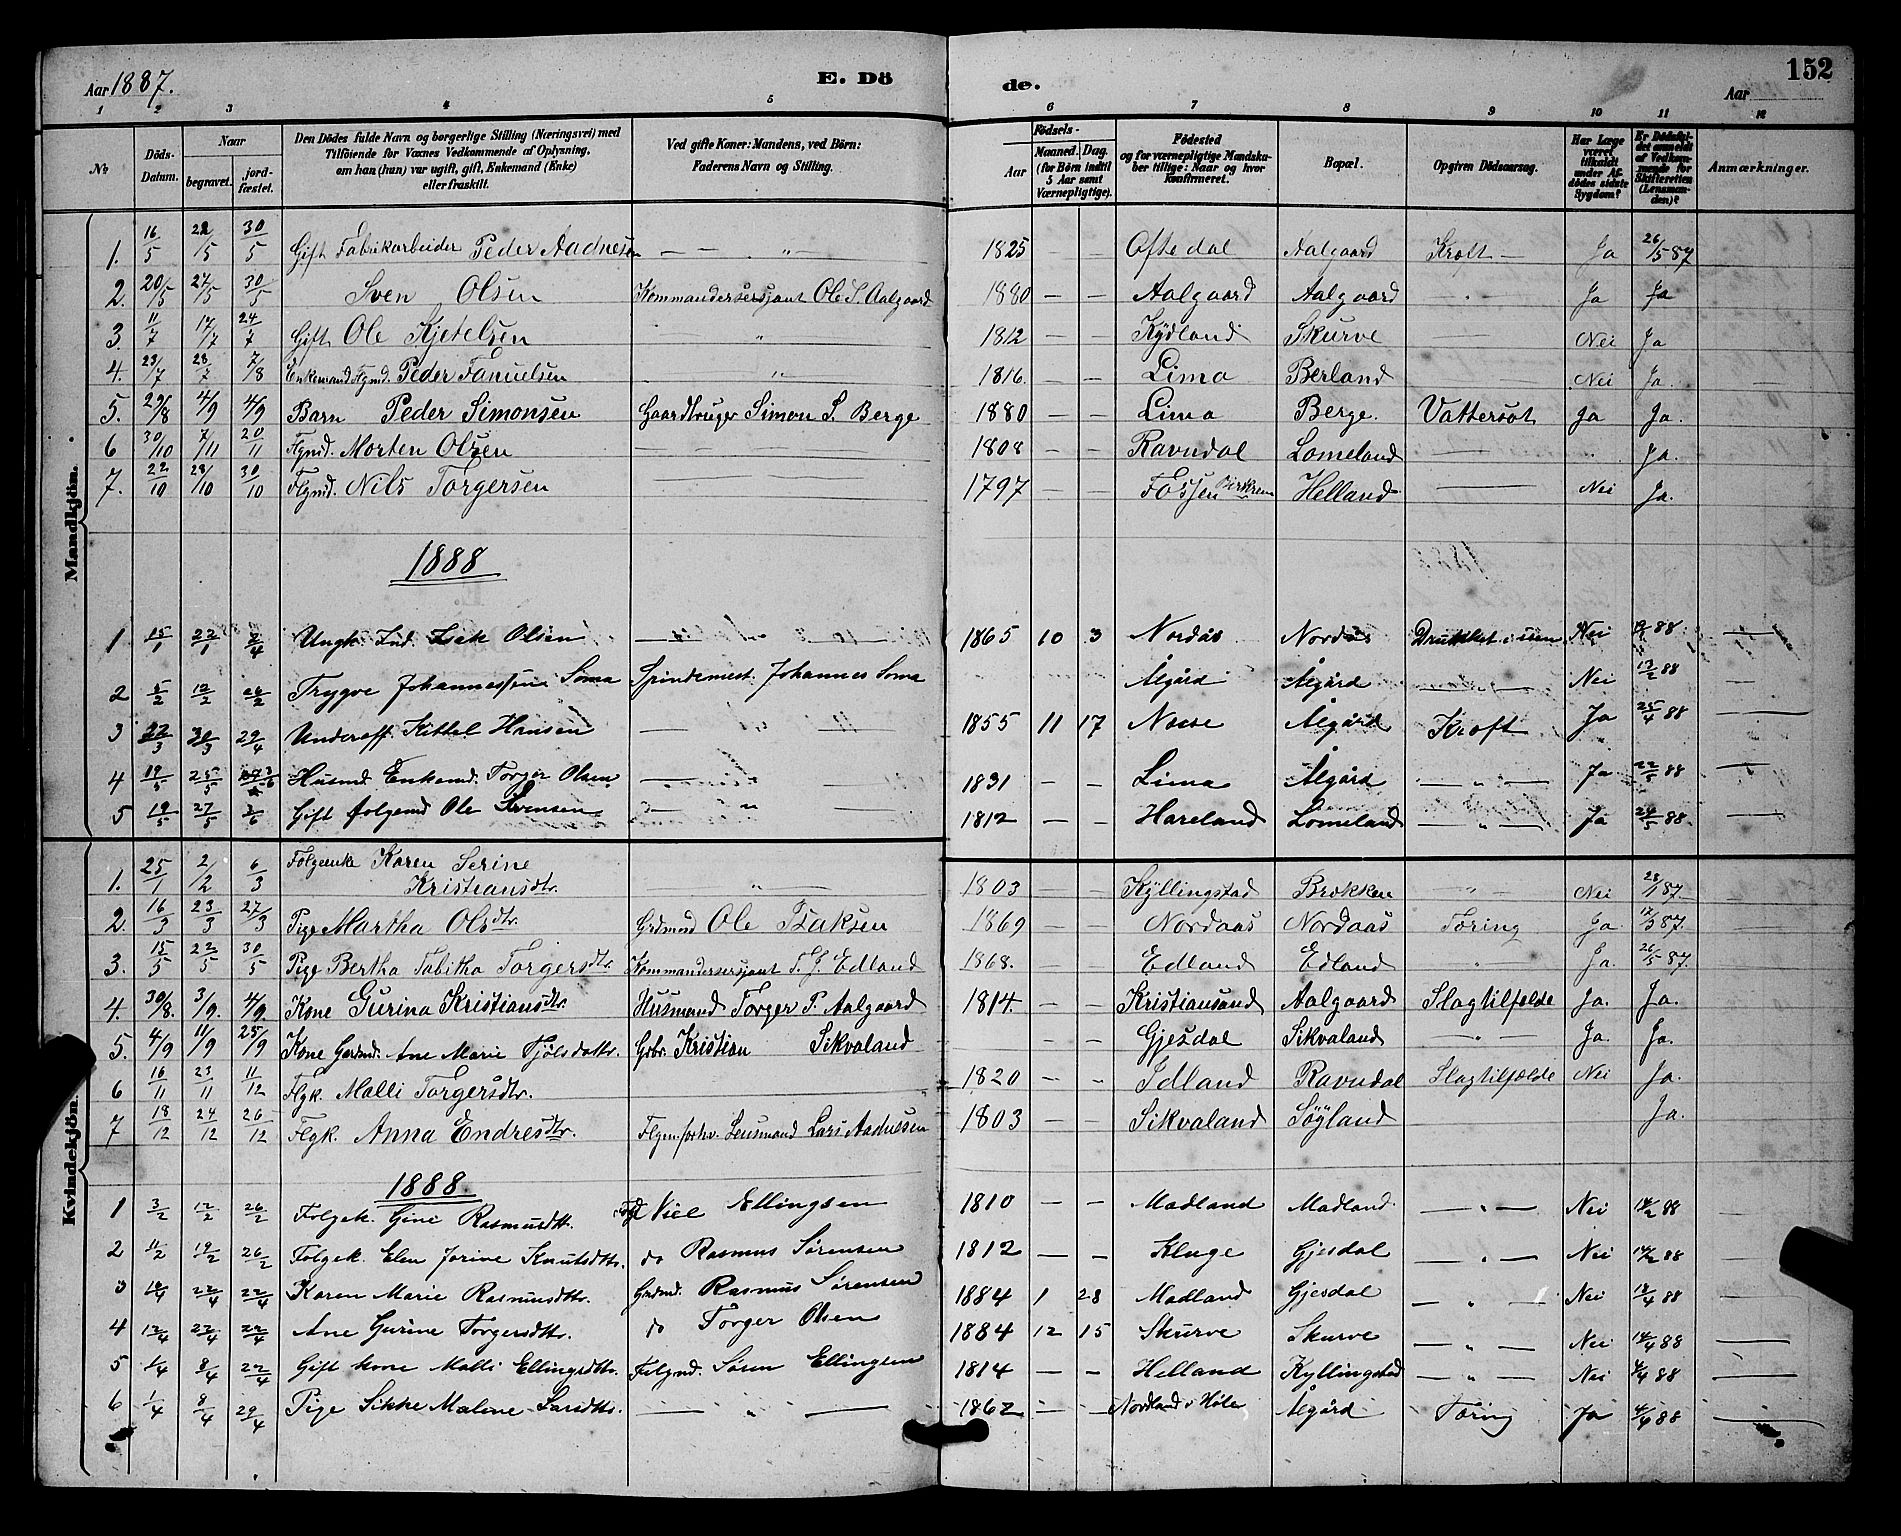 Aar 1887.
E. Dö
de.
152
Aar
1 2 3 4 5 6 7 8 9 10 11 12
No
Döds-Datum.
Naar
begravet.
jordfæstet.
Den Dödes fulde Navn og borgerlige Stilling (Næringsvei) med
Tilföiende for Voxnes Vedkommende af Oplysning,
om han (hun) var ugift, gift, Enkemand (Enke)
eller fraskilt.
Ved gifte Koner: Mandens, ved Börn:
Faderens Navn og Stilling.
Födsels-
Aar
Maaned. Dag.
(for Börn indtil
5 Aar samt
Værnepligtige).
Födested
og for værnepligtige Mandskaber tillige: Naar og hvor
Konfirmeret.
Bopæl.
Opgiven Dödsaarsag.
Har Læge
været
tilkaldt
under Afdödes sidste
Sygdom?
Er Dödsfaldet anmeldt
af Vedkommende for
Skifteretten
(Lensmanden)?
Anmærkninger.
Mandkjön.
1. 16/5 22/5 30/5 Gift Fabrikarbeider Peder Aadnesen — " — 1825 — — Oftedal Aalgaard Kræft — Ja 26/5 87
2. 20/5 27/5 30/5 Sven Olsen Kommandersersjant Ole S. Aalgaard 1880 — — Aalgaard Aalgaard " Ja Ja
3. 11/7 17/7 24/7 Gift Ole Kjetelsen " 1812 — — Kydland Skurve — Nei Ja
4. 23/7 28/7 7/8 Enkemand Flgmd. Peder Fanuelsen " 1816. — — Lima Berland — Nei Ja.
5. 29/8 4/9 4/9 Barn Peder Simonsen Gaardbruger Simon S. Berge 1880 — — Lima Berge. Vattersot Ja Ja.
6 30/10 7/11 20/11 Flgmd. Morten Olsen — 1808 — — Ravndal Lomeland — " Ja.
7. 22/10 28/10 30/10 Flgmd. Nils Torgersen — 1797 — — Fossen Birkrem Helland — Nei Ja.
1888
1 15/1 22/1 2/4 Ungk. Ind. Isak Olsen — " — 1865 10 3 Nordås Nordås Druknet i isen Nei 88 —
2 5/2 12/2 26/2 Trygve Johannessen Soma Spindemest. Johannes Soma Ålgård Ålgård — " — Nei 13/2 88 —
3 22/3 30/3 29/4 Underoff. Kittel Hansen — 1855 11 17 Ålgård Kræft Ja 25/4 88 —
4 19/5 25/5 3/6 Husmd. Enkemd. Torger Olsen — " 1831 — — Lima Ålgård — " — Ja 22/5 88 —
5 19/5 27/5 3/6 Gift folgemd Ole Svensen — " — 1812 — — Hareland Lomeland — " — Ja 24/5 88. —
Kvindekjön.
1. 25/1 2/2 6/3 Folgeenke Karen Serine
Kristiansdtr. — " — 1803 — — Kyllingstad Brekken " Nei 28/1 87.
2. 16/3 23/3 27/3 Pige Martha Olsdtr. Grdmand Ole Isaksen 1869 — — Nordaas Nordaas Tæring Ja 17/3 87.
3. 15/5 22/5 30/5 Pige Bertha Tabitha Torgersdtr. Kommandersersjant T. J. Edland 1868. — — Edland Edland " Ja. 26/5 87.
4. 30/8. 3/9. 4/9 Kone Gurina Kristiansdtr. Husmand Torger P. Aalgaard 1814. — — Kristiansand Aalgaard Slagtilfælde Ja. Ja.
5. 4/9 11/9 25/9 Kone Gardmd. Ane Marie Tjølsdattr. Gbr. Kristian Sikvaland — — Gjesdal Sikvaland — " — Ja. Ja.
6 16/11 23/11 11/12 Flgk. Malli Torgersdtr. — 1820 — — Idland Ravndal Slagtilfælde Nei Ja.
7 18/12 24/12 26/12 Flgk. Anna Endresdtr. Flgm. forhv. Lensmand Lars Aadnesen 1803 — — Sikvaland Søyland Ja.
1888.
1 3/2 12/2 26/2 Folgek. Gine Rasmusdtr. Folg. Ellingsen 1810 — — Madland Madland — " — Nei 14/2 88
2 11/2 19/2 26/2 Folgek. Elen Jorine Knutsdtr. do Rasmus Sørensen 1812 — — Kluge Gjesdal — " — Nei 14/2 88
3 14/4 22/4 22/4 Karen Marie Rasmusdtr. Grdmd. Rasmus Sørensen 1884 1 28 Madland Gjesdal — " — Nei 18/4 88
4 12/4 22/4 22/4 Ane Gurine Torgersdtr. do Torger Olsen 1884 12 15 Skurve Skurve — " — Nei 14/4 88 —
5 1/4 8/4 22/4 Gift kone Malli Ellingsdtr. Folgmd. Søren Ellingsen 1814 — — Helland Kyllingstad — " — Nei 4/4 88 —
6 1/4 8/4 29/4 Pige Sikke Malene Larsdtr. — " — 1862 — — Nordland i Høle Ålgård Tæring Ja 4/4 88 —